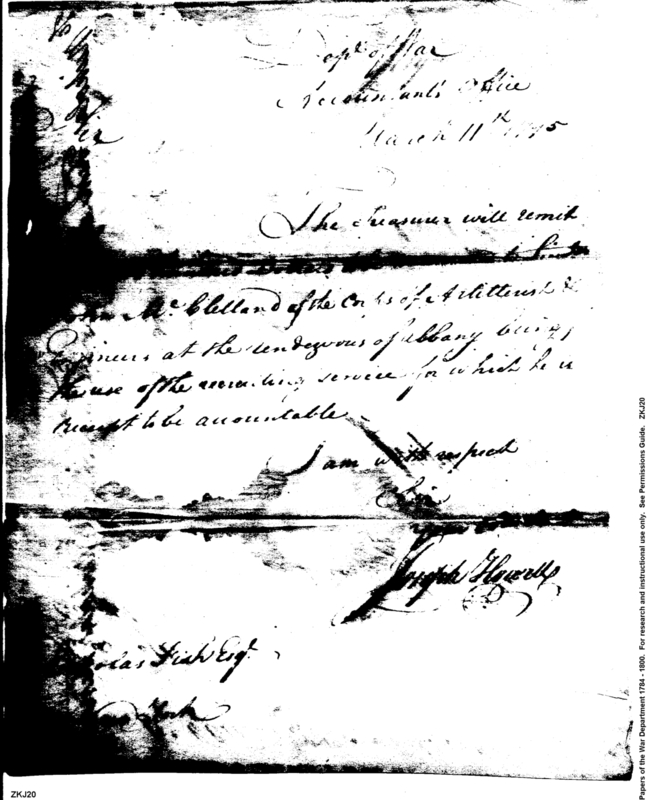 Dept. of War
Accountants Office
March 11th 1795
Sir
The Treasurer will remit
dollars to Lieut
John Mc Clelland of the Corps of Artillerists &
Engineers at the rendezvous of Albany being
the use of the recruiting service for which he is
to be accountable
I am with respect
Sir
Joseph Howell
Nicholas Fish Esqr.
New York
ZKJ20
Papers of the War Department 1784 - 1800. For research and instructional use only. See Permissions Guide. ZKJ20